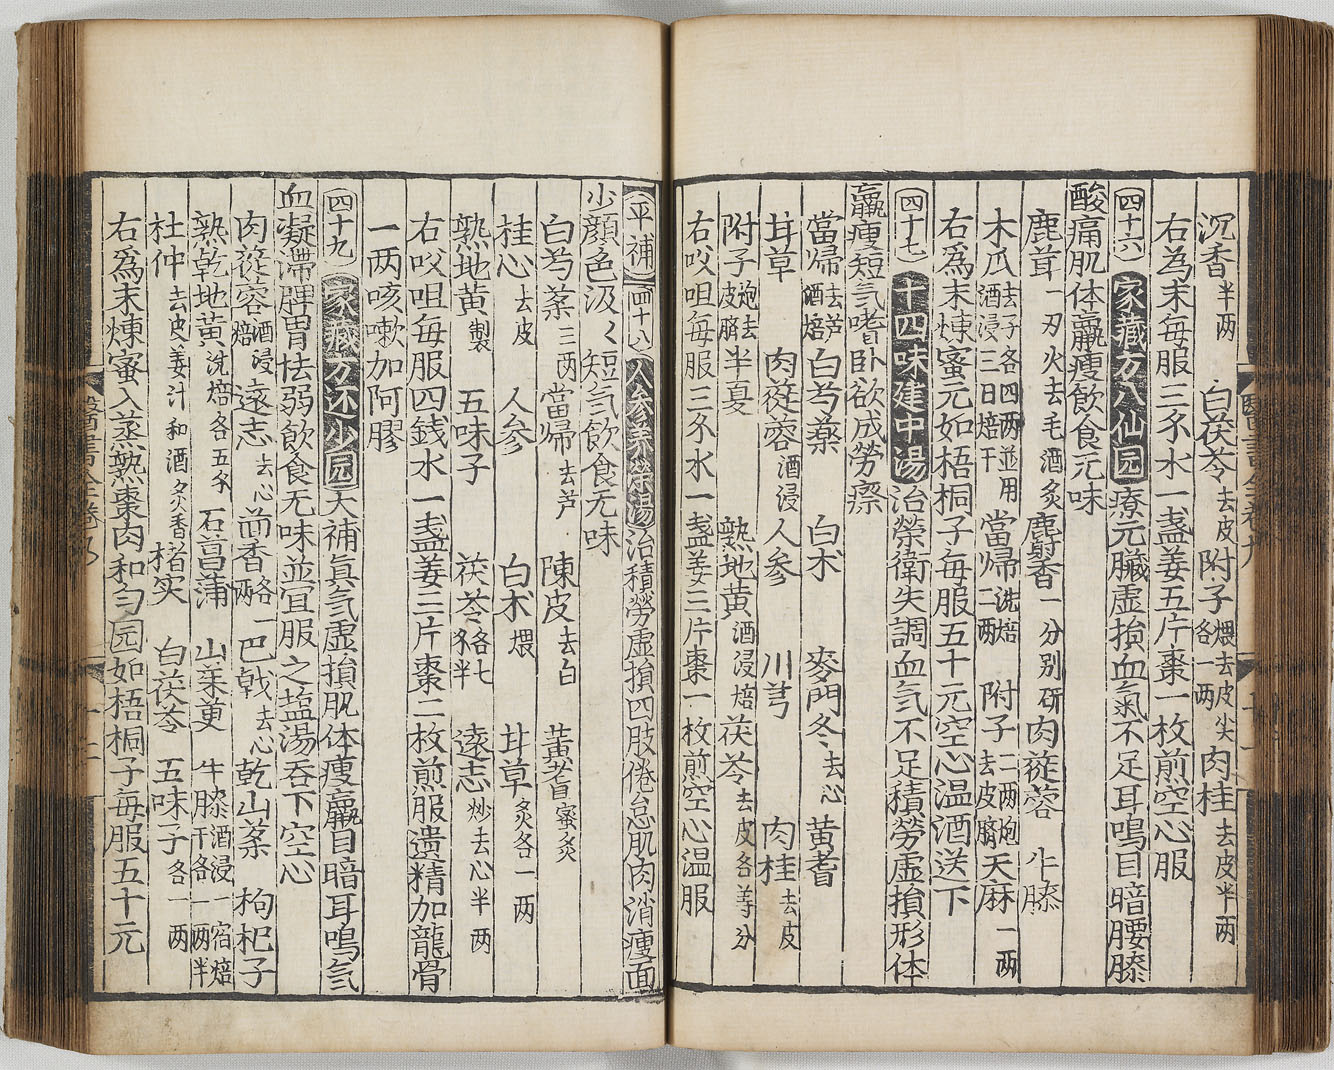 沉香半两 白茯苓去皮 附子煨去皮尖各一两 肉桂去皮半两
右為末每服三不水一盞姜五片棗一枚煎空心服
四十六 家藏方八仙园 療元臓虚損血氣不足耳鳴目暗腰膝
酸痛肌体羸瘦飲食无味
鹿茸一刃火去毛酒炙 麝香一分别研 肉蓯蓉 牛膝
木瓜去子各四两並用酒浸三日焙干 當帰洗焙二两 附子二两炮去皮臍 天麻一两
右爲末煉蜜元如梧桐子每服五十元空心温酒送下
四十七 十四味建中湯 治榮衛失調血氣不足積勞虚損形体
羸瘦短氣嗜卧欲成勞瘵
當歸去芦酒焙 白芍藥 白朮 麥門冬去心 黄耆
甘草 肉蓯蓉酒浸 人参 川芎 肉桂去皮
附子炮去皮臍 半夏 熟地黄酒浸焙 茯苓去皮各等分
右㕮咀每服三不水一盞姜三片棗一枚煎空心温服
平補 四十八 人参养榮湯 治積勞虚損四肢倦怠肌肉消瘦面
少顔色汲〻短氣飲食无味
白芍薬三两 當帰去芦 陳皮去白 黄耆蜜炙
桂心去皮 人参 白朮煨 甘草炙各一两
熟地黄製 五味子 茯苓各七不半 遠志炒去心半两
右㕮咀每服四銭水一盞姜三片棗二枚煎服遺精加龍骨
一两咳嗽加阿膠
四十九 家藏方还少园 大補真氣虚損肌体瘦羸目暗耳鳴氣
血凝滞脾胃怯弱飲食无味並宜服之塩湯吞下空心
肉蓯蓉酒浸焙 遠志去心 茴香各一两 巴戟去心 乾山薬 枸杞子
熟乾地黄洗焙各五不 石菖蒲 山茱萸 牛膝酒浸一宿焙干各一两半
杜仲去皮姜汁和酒炙香 楮实 白茯苓 五味子各一两
右爲末煉蜜入蒸熟棗肉和匀园如梧桐子每服五十元